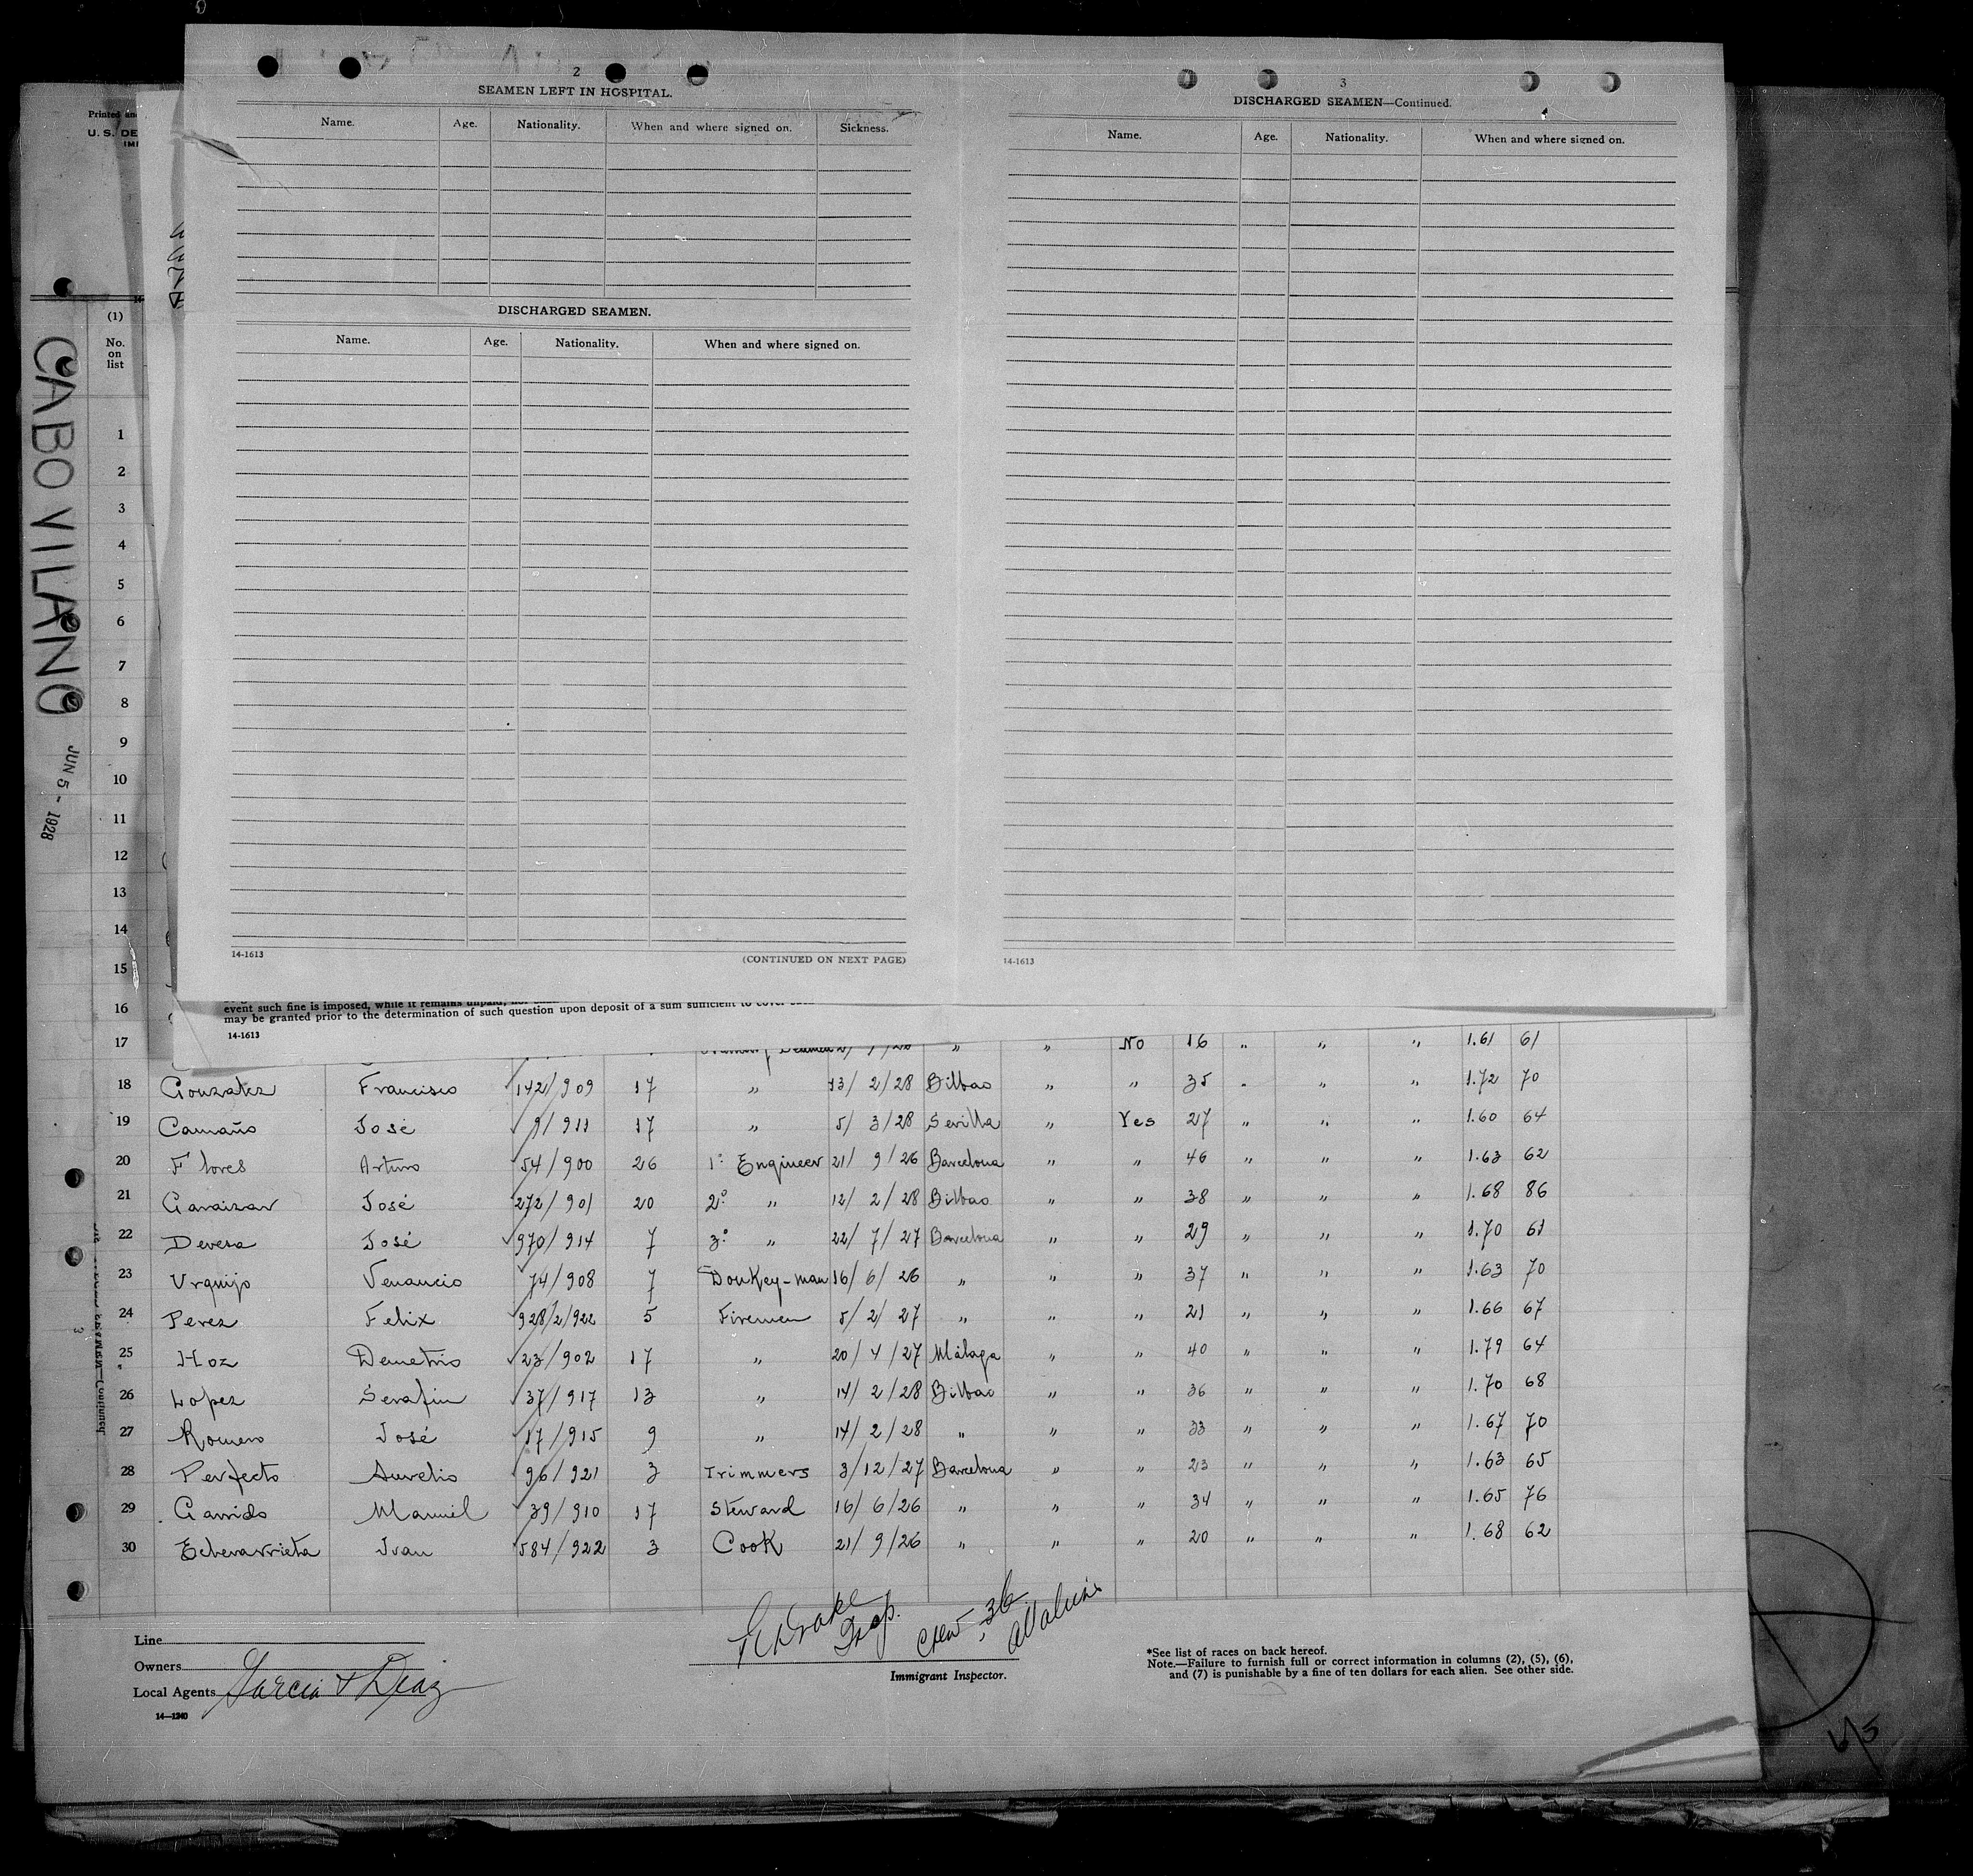 2
SEAMEN LEFT IN HOSPITAL.
Name. Age. Nationality. When and where signed on. Sickness.
DISCHARGED SEAMEN.
Name. Age. Nationality. When and where signed on.
14-1613 (CONTINUED ON NEXT PAGE)
3
DISCHARGED SEAMEN—Continued.
Name. Age. Nationality. When and where signed on.
14-1613
Printed
U. S. DE
IMI
CABO VILANO
JUN 5 - 1928
(1)
No.
on
list
1
2
3
4
5
6
7
8
9
10
11
12
13
14
15
16
event such fine is imposed, while it remains unpaid,
may be granted prior to the determination of such question upon deposit of a sum sufficient to cover
14-1613
17 " " No 16 " " " 1.61 61
18 Gonzalez Francisco 142/909 17 " 13/2/28 Bilbao " " 35 " " " 1.72 70
19 Camaño José 9/911 17 " 5/3/28 Sevilla " Yes 27 " " " 1.60 64
20 Flores Arturo 54/900 26 1º Engineer 21/9/26 Barcelona " " 46 " " " 1.63 62
21 Garaizar José 272/901 20 2º " 12/2/28 Bilbao " " 38 " " " 1.68 86
22 Devesa José 970/914 7 3º " 22/7/27 Barcelona " " 29 " " " 1.70 61
23 Urquijo Venancio 74/908 7 Donkey-man 16/6/26 " " " 37 " " " 1.63 70
24 Perez Felix 928/2/922 5 Firemen 5/2/27 " " " 21 " " " 1.66 67
25 Hoz Demetrio 23/902 17 " 20/4/27 Málaga " " 40 " " " 1.79 64
26 Lopez Serafin 37/917 13 " 14/2/28 Bilbao " " 36 " " " 1.70 68
27 Romero José 17/915 9 " 14/2/28 " " " 33 " " " 1.67 70
28 Perfecto Aurelio 96/921 3 Trimmers 3/12/27 Barcelona " " 23 " " " 1.63 65
29 Garrido Manuel 39/910 17 Steward 16/6/26 " " " 34 " " " 1.65 76
30 Echevarrieta Ivan 584/922 3 Cook 21/9/26 " " " 20 " " " 1.68 62
Line
Owners
Local Agents Garcia & Diaz
14—1240
Drake
Insp.
Crew 36
Immigrant Inspector.
*See list of races on back hereof.
Note.—Failure to furnish full or correct information in columns (2), (5), (6),
and (7) is punishable by a fine of ten dollars for each alien. See other side.
6/5